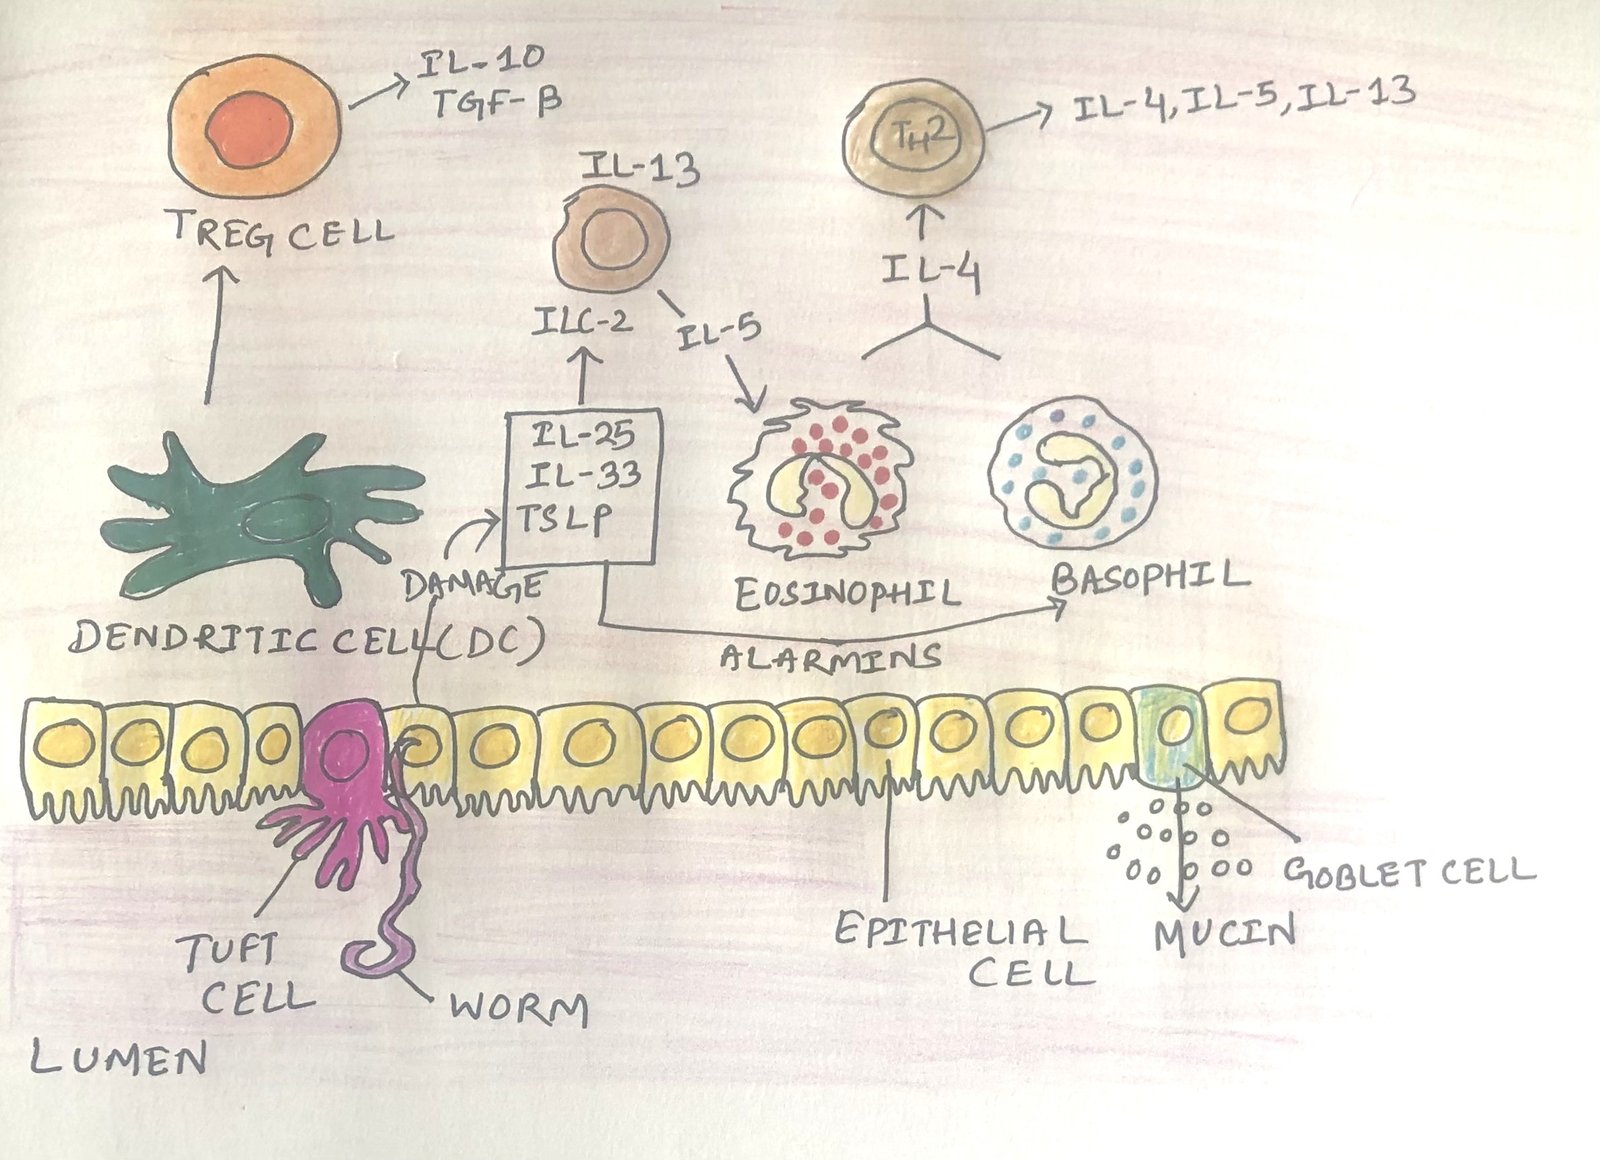 IL-10
TGF-β
TREG CELL
IL-13
ILC-2
IL-5
TH2
IL-4, IL-5, IL-13
IL-4
IL-25
IL-33
TSLP
DAMAGE
DENDRITIC CELL (DC)
EOSINOPHIL
BASOPHIL
ALARMINS
TUFT
CELL
WORM
EPITHELIAL
CELL
MUCIN
GOBLET CELL
LUMEN